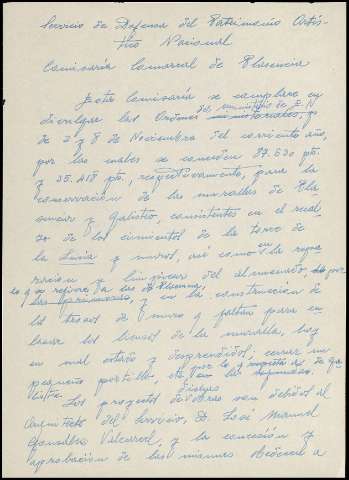 Servicio de Defensa del Patrimonio Artís-
tico Nacional
Comisaría Comarcal de Plasencia
Esta Comisaría se complace en
divulgar las Ordenes del ministerio de E. N.
de 2 y 8 de Noviembre del corriente año,
por las cuales se conceden 87.630 pts.
y 35.418 pts., respectivamente, para la
conservación de las murallas de Pla-
sencia y Galisteo, consistentes en el recal-
zo de los cimientos de la torre de
la Lucia y muros, así como en la repa-
ración y limpieza del almenado, por
lo que refiere a las de Plasencia,
y en la construcción de
los trozos de muro q. faltan para en-
lazar los lienzos de la muralla, hoy
en mal estado y desprendidos, cerrar un
pequeño portillo, etc por lo q. respecta a las de Ga-
listeo.
Los proyectos de obras son debidos al
Arquitecto del Servicio, D. José Manuel
González Valcárcel, y la concesión y
aprobación de las mismas obedecen a